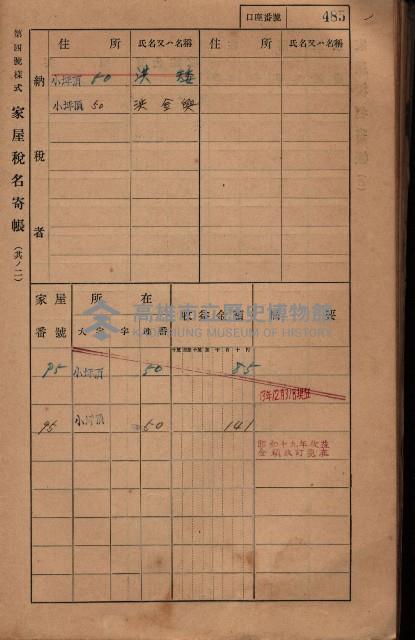 口座番號 485
第四號樣式 家屋稅名寄帳 (其ノ二)
納稅者
住所 氏名又ハ名稱 住所 氏名又ハ名稱
小坪頂 50 洪
小坪頂 50 洪金
家屋番號 所在 收年金額 摘要
大字 字 地番
95 小坪頂 50 85
13年12月31日現在
95 小坪頂 50 141
昭和十九年
金額改訂
高雄市立歷史博物館
KAOHSIUNG MUSEUM OF HISTORY